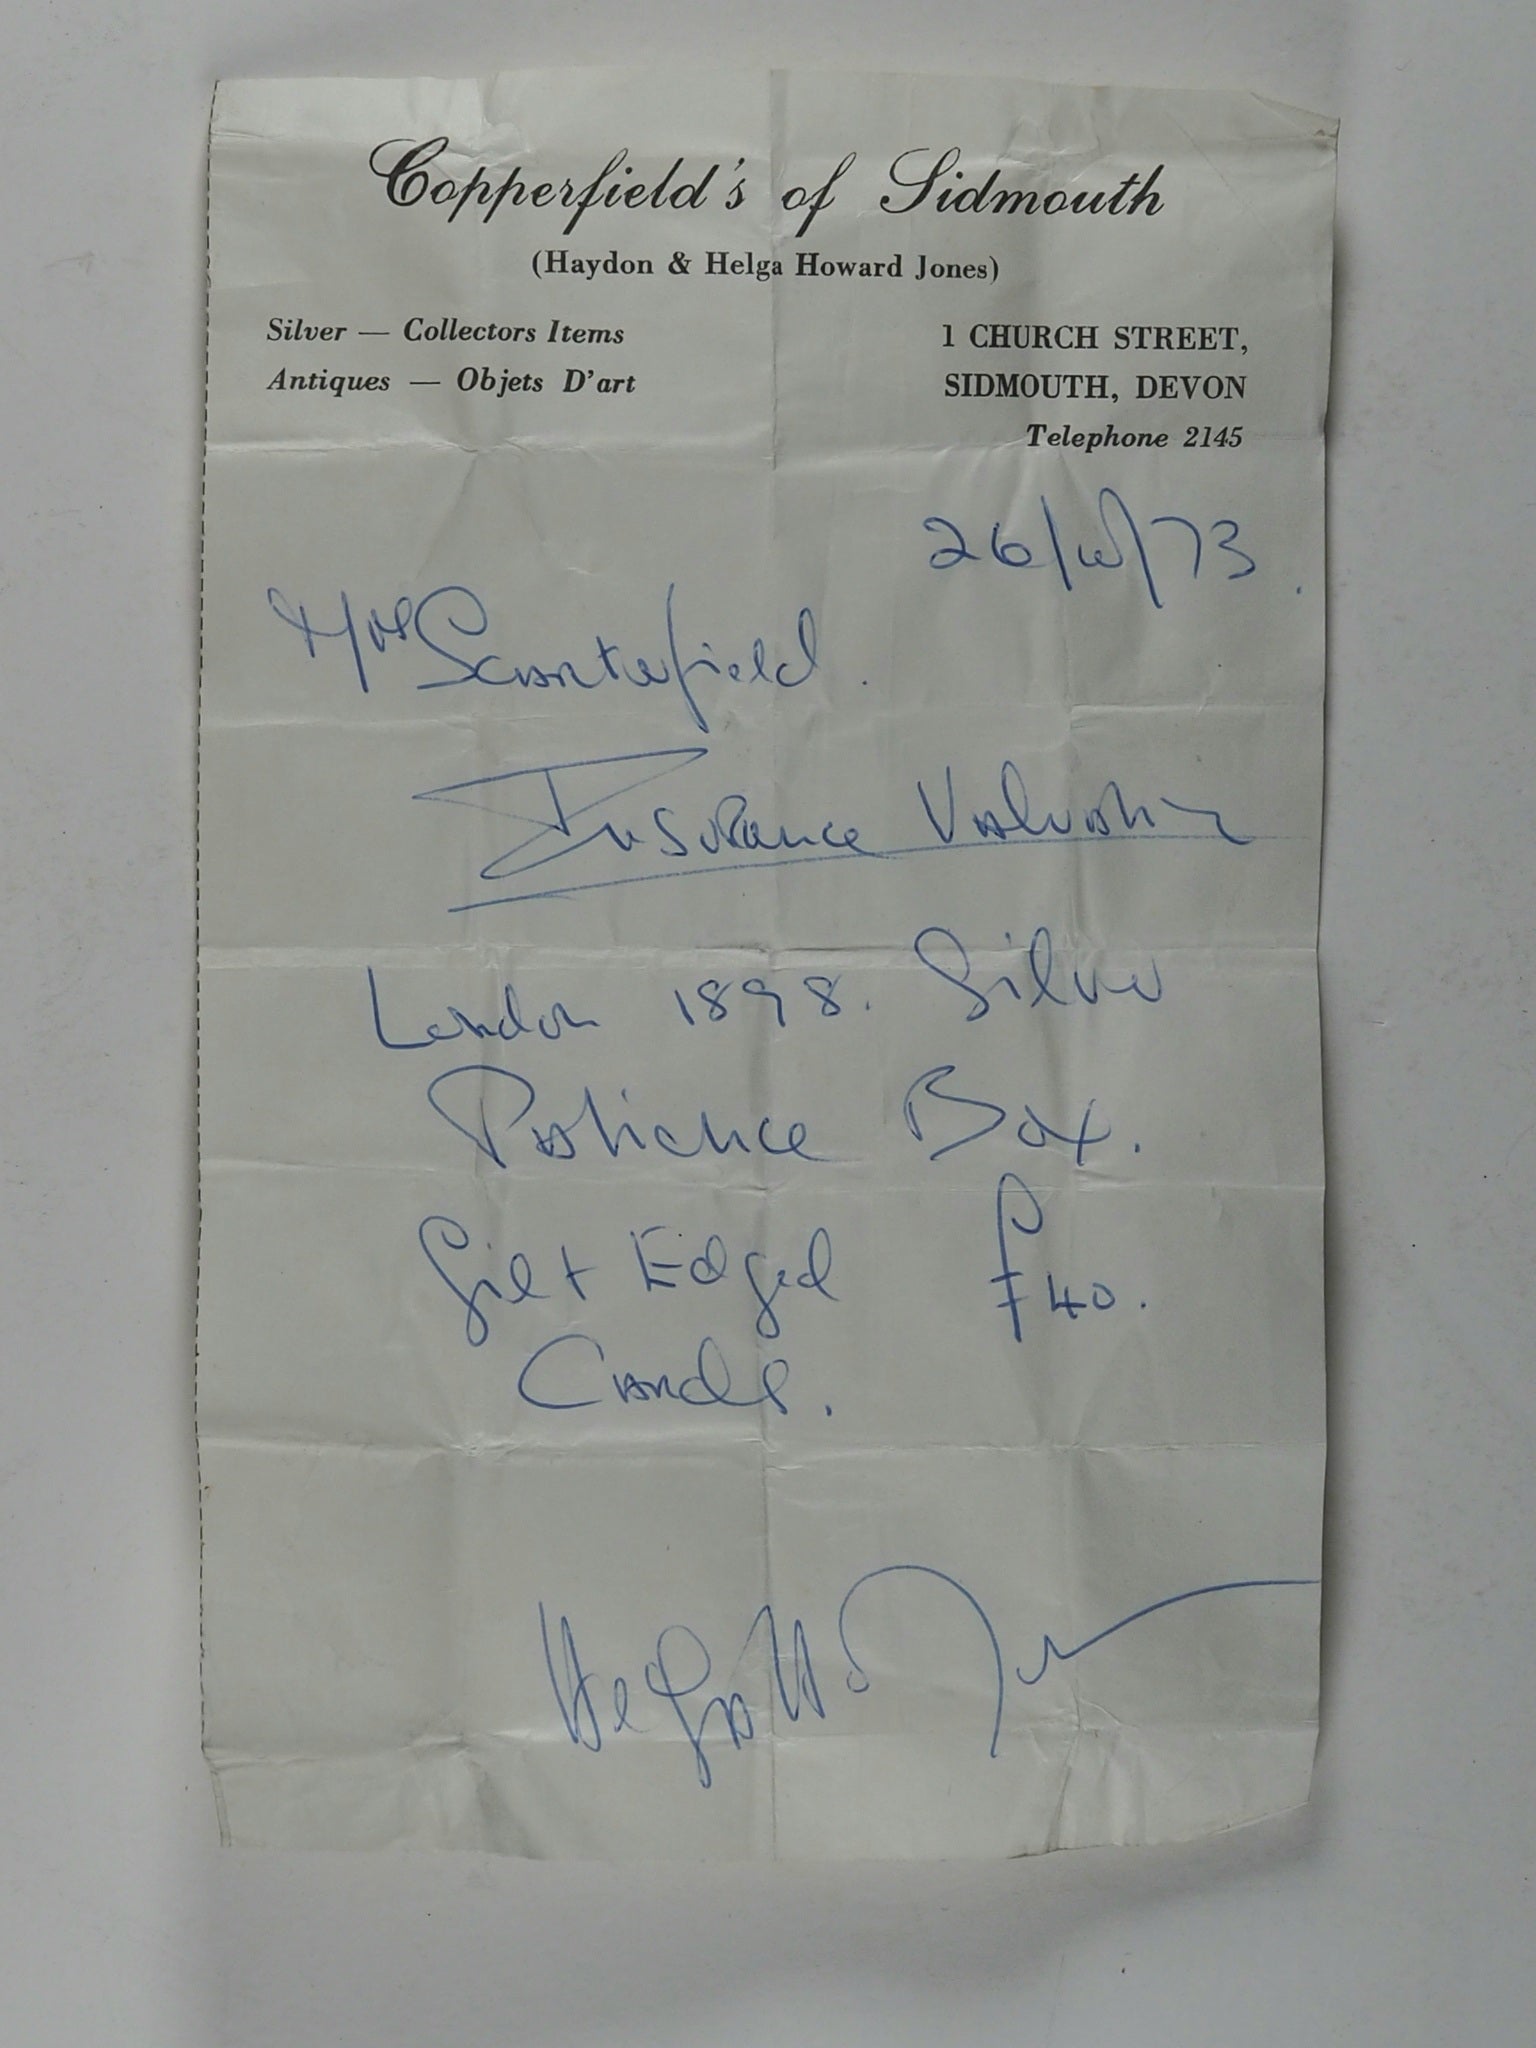 Copperfield's of Sidmouth
(Haydon & Helga Howard Jones)
Silver — Collectors Items
Antiques — Objets D'art
1 CHURCH STREET,
SIDMOUTH, DEVON
Telephone 2145
26/10/73.
Mrs Scarterfield.
Insurance Valuation
London 1898. Silver
Patience Box.
Gilt Edged £40.
Cards.
Helga H Jones